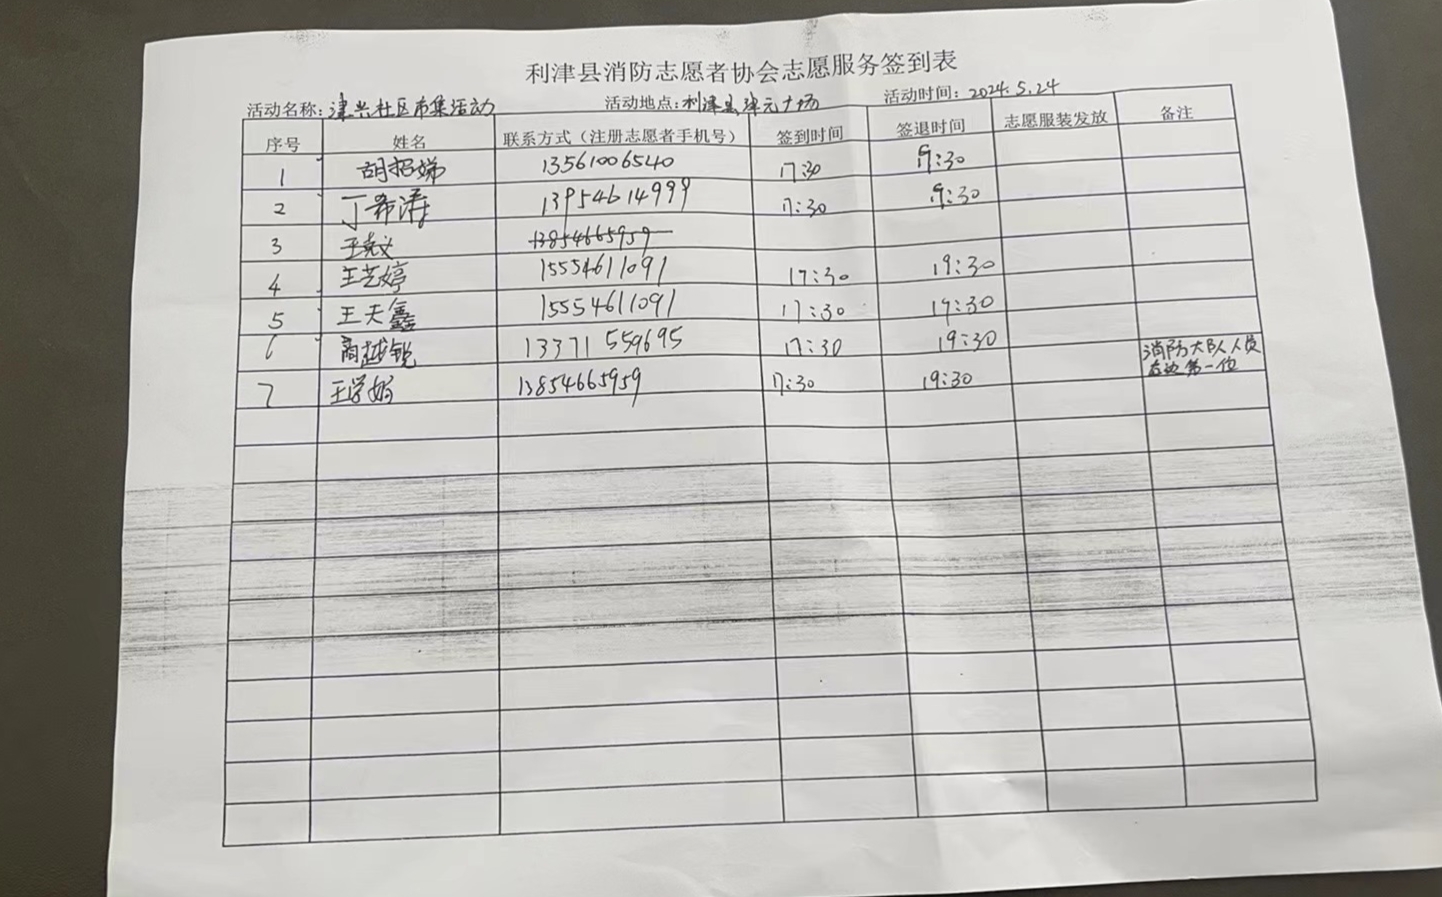 利津县消防志愿者协会志愿服务签到表
活动名称：津兴社区市集活动 活动地点：利津县津元广场 活动时间：2024.5.24
序号 姓名 联系方式（注册志愿者手机号） 签到时间 签退时间 志愿服装发放 备注
1 胡招娣 13561006540 17:30 19:30
2 丁希涛 13954614999 17:30 19:30
3 13854665959
4 王艺婷 15554611091 17:30 19:30
5 王天鑫 15554611091 17:30 19:30
6 商越锐 13371559695 17:30 19:30 消防大队人员
右边第一位
7 王学娟 13854665959 17:30 19:30